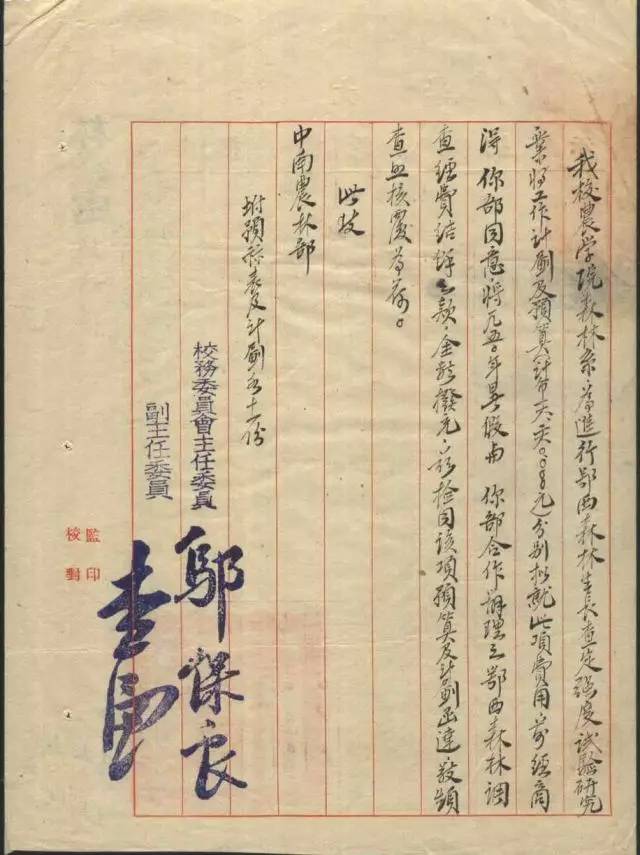 我校農學院森林系為進行鄂西森林生長查定强度試驗研究
業將工作計劃及預算計幣元分别拟就此項費用前經商
得 你部同意將一九五〇年暑假由 你部合作辦理之鄂西森林調
查經費結餘之款全数撥充兹检同該項預算及計劃函達敬煩
查照核覆為荷。
此致
中南農林部
坿預祘表及計劃各十一份
校務委員會主任委員 鄔保良
副主任委員 查謙
監印
校對